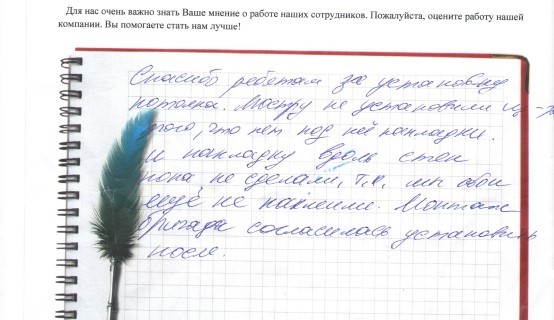 Для нас очень важно знать Ваше мнение о работе наших сотрудников. Пожалуйста, оцените работу нашей
компании. Вы помогаете стать нам лучше!
Спасибо ребятам за установку
потолка. Люстру не установили из-за
того, что нет под неё накладки.
и накладку вдоль стен
пока не сделали, т.к. мы обои
ещё не наклеили. Монтаж
бригада согласилась установить
после.